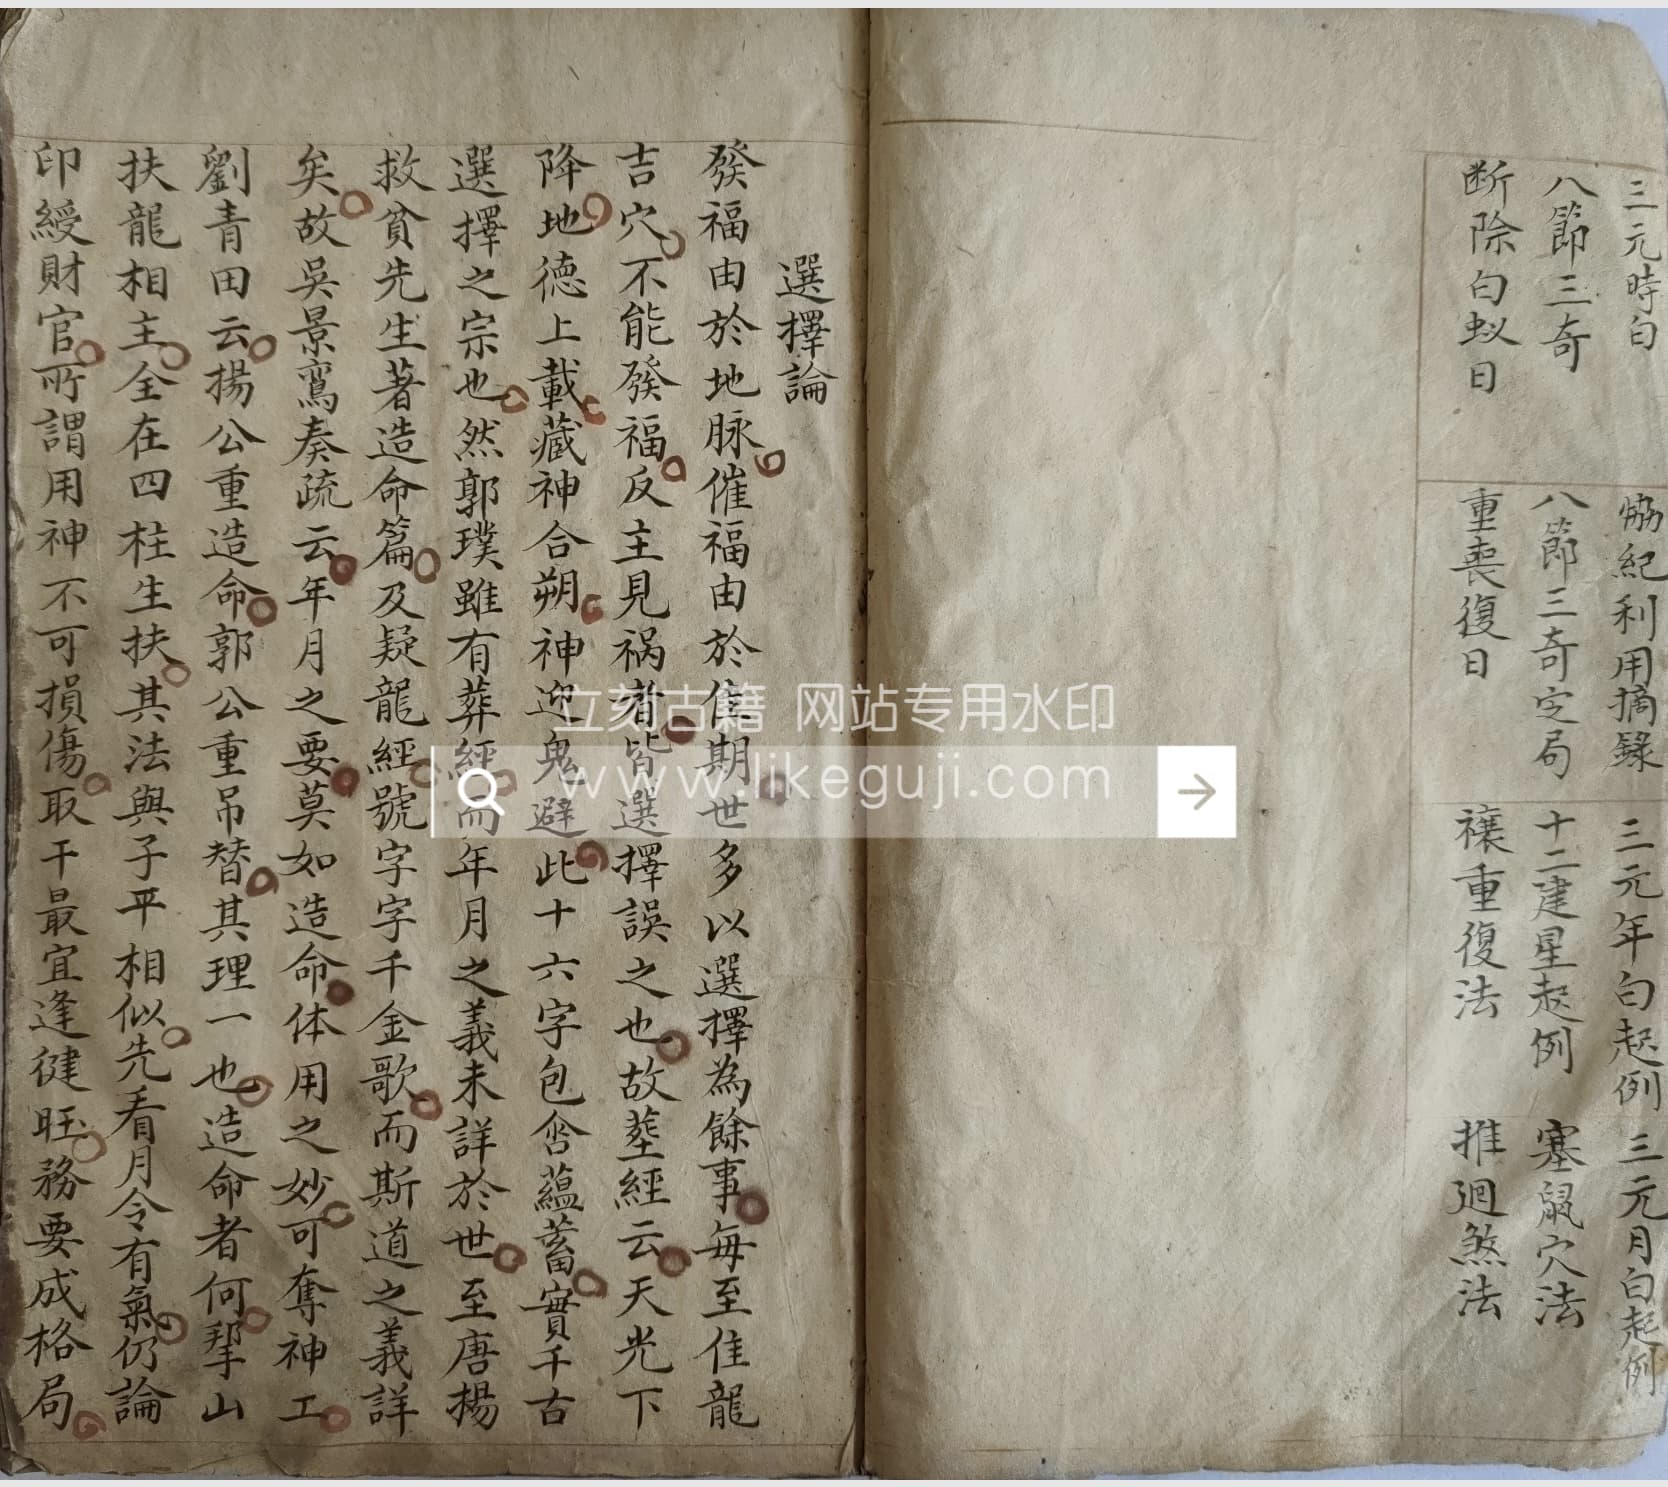 三元時白 恊紀利用摘錄 三元年白起例 三元月白起例
八節三奇 八節三奇定局 十二建星起例 塞鼠穴法
断除白蚁日 重喪復日 禳重復法 推廻煞法
選擇論
發福由於地脉催福由於隹期世多以選擇為餘事毎至佳龍
吉穴不能發福反主見祸者皆選擇誤之也故塟經云天光下
降地德上載藏神合朔神迎鬼避此十六字包含蘊蓄實千古
選擇之宗也然郭璞雖有葬經而年月之義未詳於世至唐楊
救貧先生著造命篇及疑龍經號字字千金歌而斯道之義詳
矣故吳景鸞奏疏云年月之要莫如造命体用之妙可奪神工
劉青田云揚公重造命郭公重吊替其理一也造命者何犎山
扶龍相主全在四柱生扶其法與子平相似先看月令有氣仍論
印綬財官所謂用神不可損傷取干最宜逢健旺務要成格局
立刻古籍 网站专用水印
www.likeguji.com